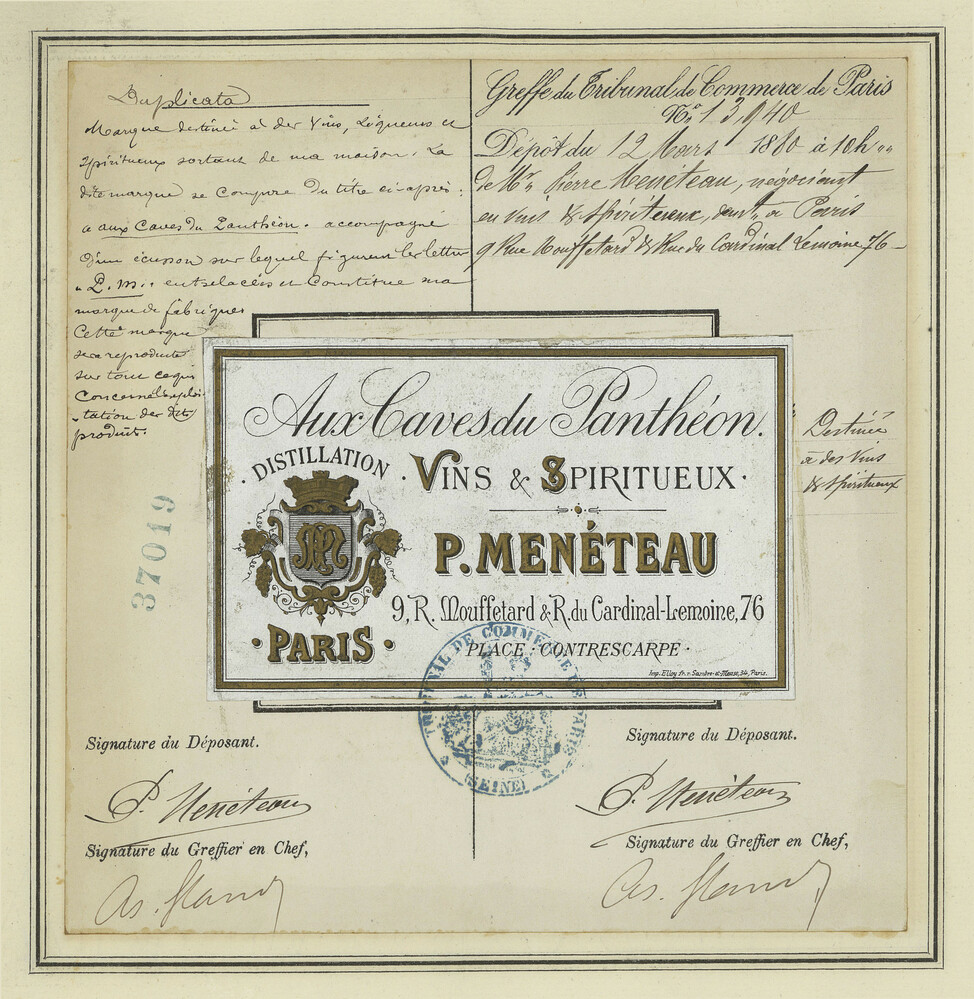 Duplicata
Marque destinée à des Vins, Liqueurs et
Spiritueux sortant de ma maison. La
dite marque se compose du titre ci-après :
« aux Caves du Panthéon. accompagné
d'un écusson sur lequel figurent les lettres
« P. M. » entrelacées et constitue ma
marque de fabrique
Cette marque
sera reproduite
sur tout ce qui
concerne l'exploi-
tation des dits
produits.
Greffe du Tribunal de Commerce de Paris
No. 13,940
Dépôt du 12 Mars 1880 à 10h
de Mr. Pierre Menéteau, négociant
en vins & spiritueux, à Paris
9 Rue Mouffetard & Rue du Cardinal Lemoine 76 -
Destinée
à des Vins
& Spiritueux
37019
Aux Caves du Panthéon.
· DISTILLATION
· VINS & SPIRITUEUX ·
PM
P. MENÉTEAU
9, R. Mouffetard & R. du Cardinal-Lemoine, 76
· PARIS ·
PLACE · CONTRESCARPE ·
Imp. Elloy Fr. r. Sambre-et-Meuse, 24, Paris.
TRIBUNAL DE COMMERCE DE PARIS
(SEINE)
Signature du Déposant.
P. Menéteau
Signature du Greffier en Chef,
Signature du Déposant.
P. Menéteau
Signature du Greffier en Chef,